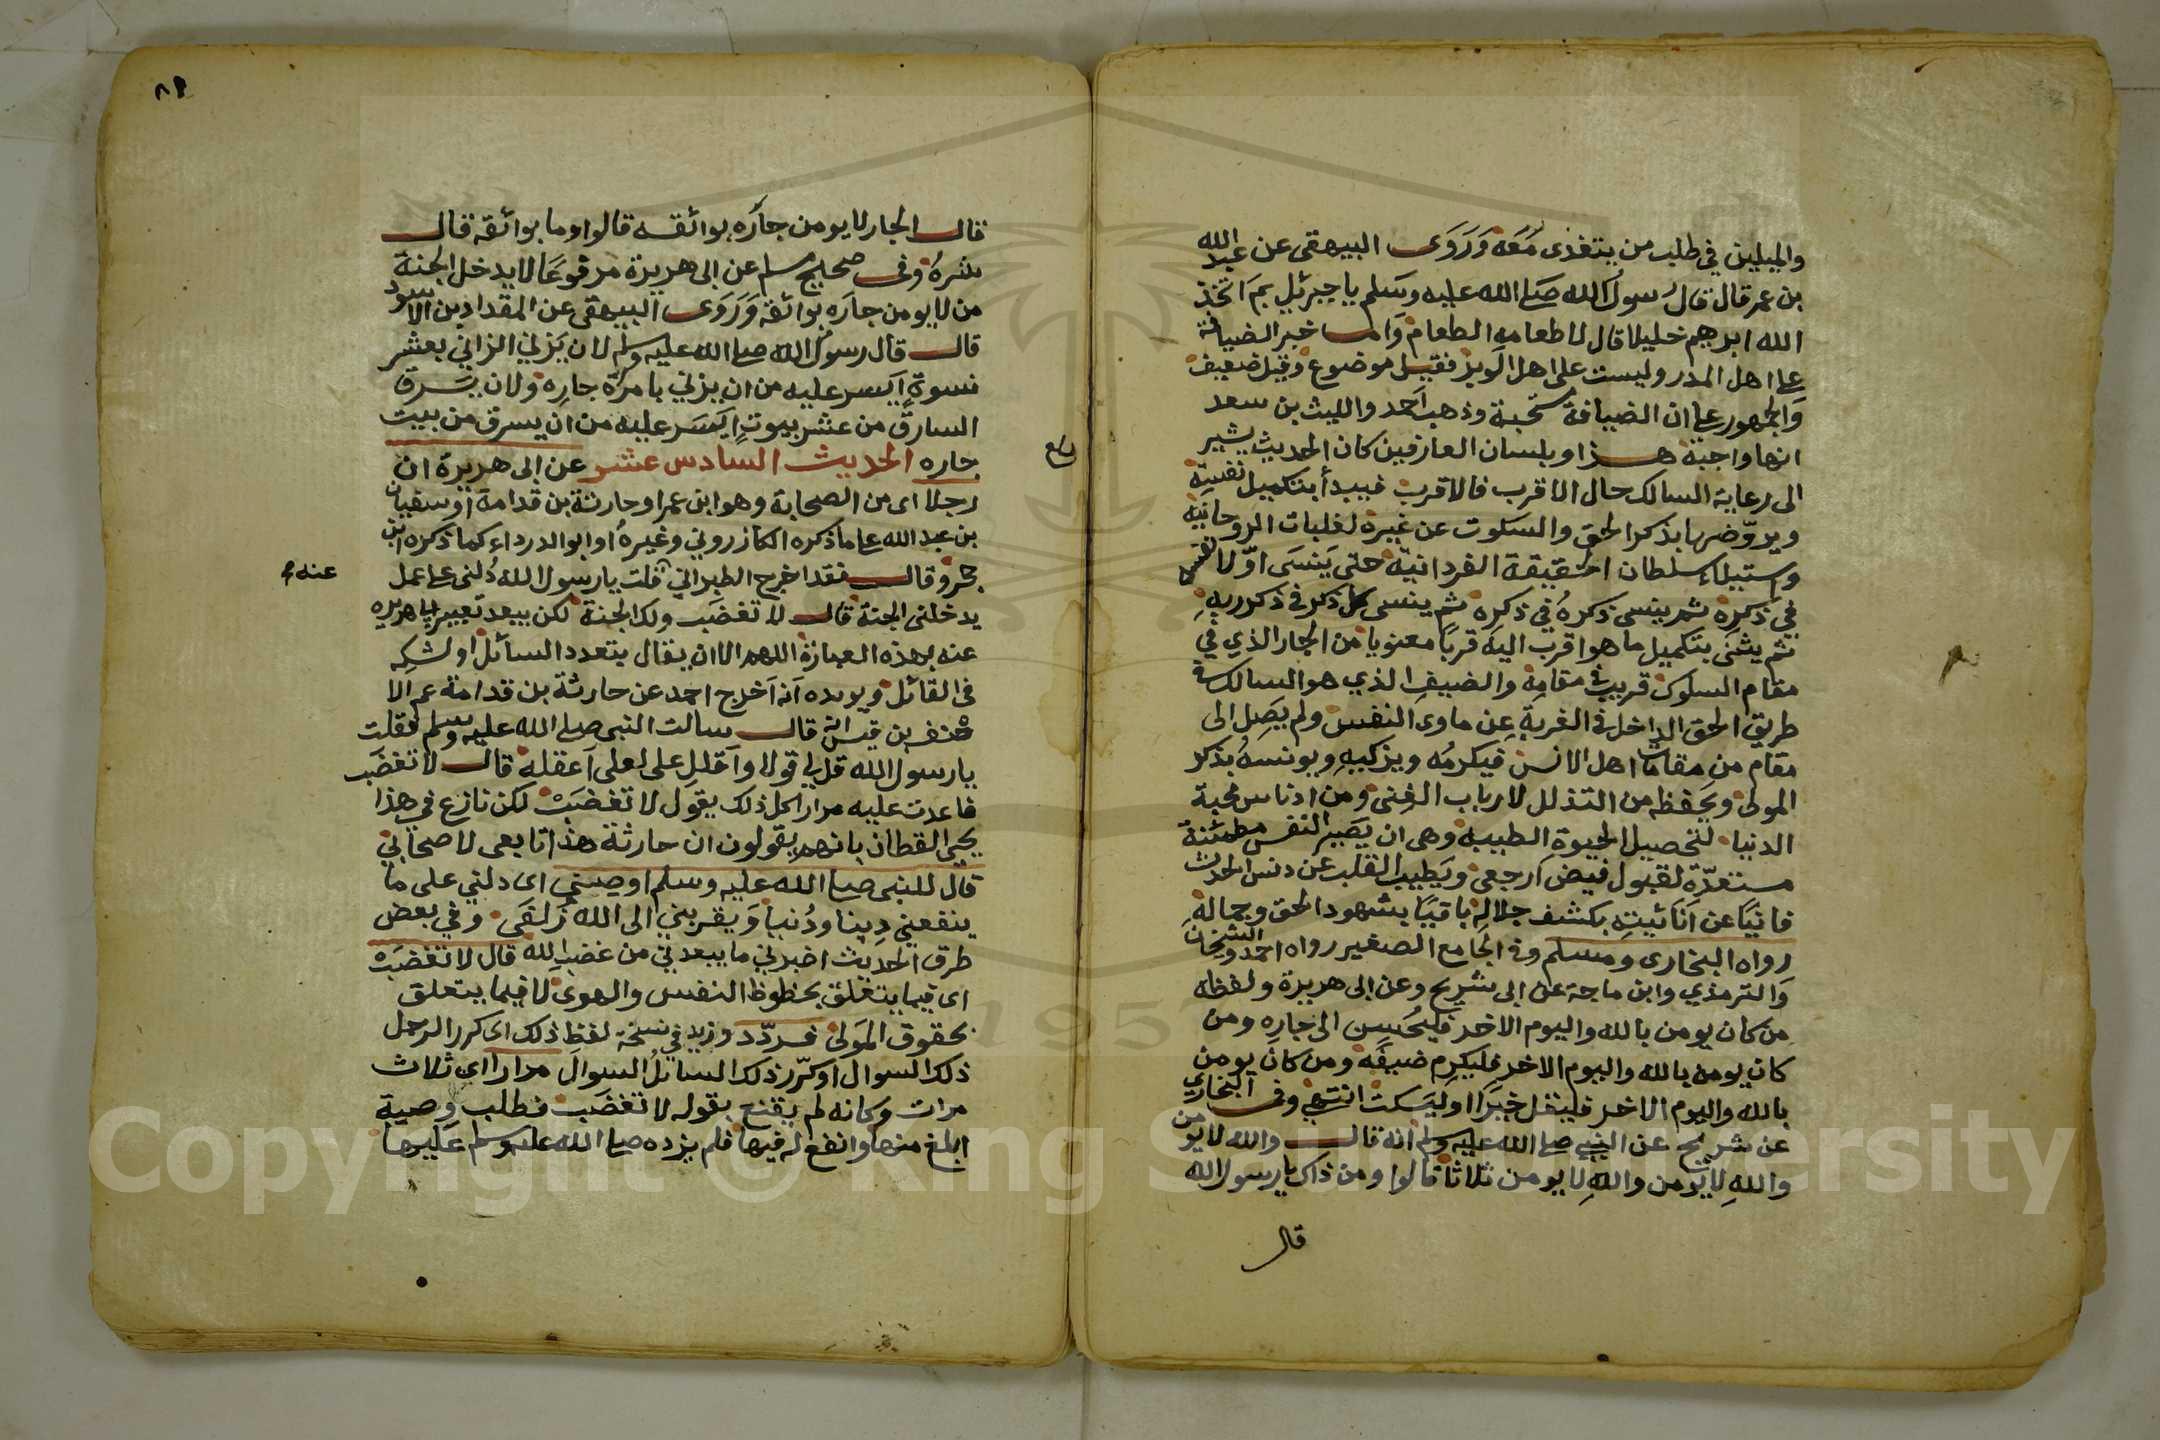 والميلين في طلب من يتغذى معه وروى البيهقى عن عبد الله
بن عمر قال قال رسول الله صلى الله عليه وسلم يا جبرئيل بم اتخذ
الله ابرهيم خليلا قال لاطعامه الطعام واما خبر الضيافة
على اهل المدر وليست على اهل الوبر فقيل موضوع وقيل ضعيف
والجمهور على ان الضيافة مستحبة وذهب احمد والليث بن سعد
انها واجبة هذا وبلسان العارفين كان الحديث يشير
الى رعاية السالك حال الاقرب فالاقرب فيبدأ بتكميل نفسه
ويروّضها بذكر الحق والسكوت عن غيره لغلبات الروحانية
واستيلاء سلطان الحقيقة الفردانيّة حتى ينسى اوّلا نفسه
في ذكره ثم ينسى ذكره في ذكره ثم ينسى كل ذكر في ذكر ربه
ثم يثنى بتكميل ما هو اقرب اليه قربا معنويا من الجار الذي في
مقام السلوك قريب في مقامه والضيف الذي هو السالك في
طريق الحق الداخل في الغربة عن ماوى النفس ولم يصل الى
مقام من مقامات اهل الانس فيكرمه ويزكيه ويونسه بذكر
المولى ويحفظه من التذلل لارباب الغنى ومن ادناس محبة
الدنيا لتحصيل الحيوة الطيبة وهى ان يصير النفس مطمئنة
مستعدّة لقبول فيض ارجعى ويطيب القلب عن دنس الحدث
فانيًا عن انانيته بكشف جلاله باقيًا بشهود الحق وجماله
رواه البخارى ومسلم وفى الجامع الصغير رواه احمد والشيخان
والترمذي وابن ماجة عن ابى شريح وعن ابى هريرة ولفظه
من كان يومن بالله واليوم الاخر فليحسن الى جاره ومن
كان يومن بالله واليوم الاخر فليكرم ضيفه ومن كان يومن
بالله واليوم الاخر فليقل خيرًا او ليسكت انتهى وفى البخاري
عن شريح عن النبي صلى الله عليه وسلم انه قال والله لا يومن
والله لا يومن والله لا يومن ثلاثا قالوا ومن ذاك يا رسول الله
قال
٨٩
قال الجار لا يومن جاره بوائقه قالوا وما بوائقه قال
شره وفى صحيح مسلم عن ابى هريرة مرفوعًا لا يدخل الجنة
من لا يومن جاره بوائقه وروى البيهقى عن المقداد بن الاسود
قال قال رسول الله صلى الله عليه وسلم لان يزني الزاني بعشر
نسوة ايسر عليه من ان يزني بامرأة جاره ولان يسرق
السارق من عشر بيوت ايسر عليه من ان يسرق من بيت
جاره الحديث السادس عشر عن ابى هريرة ان
رجلا اى من الصحابة وهو ابن عمر او حارثة بن قدامة او سفيان
بن عبد الله على ما ذكره الكازروني وغيره او ابو الدرداء كما ذكره ابن
حجر وقال فقد اخرج الطبراني قلت يا رسول الله دلنى على عمل
عنه م
يدخلنى الجنة قال لا تغضب ولك الجنة لكن يبعد تعبير ابى هريره
عنه بهذه العبارة اللهم الا ان يقال بتعدد السائل او لشكه
فى القائل ويويده انه اخرج احمد عن حارثة بن قدامة عم الا
حنف بن قيس انه قال سالت النبى صلى الله عليه وسلم فقلت
يا رسول الله قل لي قولا واقلل على لعلى اعقله قال لا تغضب
فاعدت عليه مرارا كل ذلك يقول لا تغضب لكن نازع في هذا
يحيى القطان بانهم يقولون ان حارثة هذا تابعى لا صحابي
قال للنبى صلى الله عليه وسلم اوصني اى دلني على ما
ينفعني دينا ودنيا ويقربني الى الله زلفى وفي بعض
طرق الحديث اخبرني ما يبعدني من غضب الله قال لا تغضب
اى فيما يتعلق بحظوظ النفس والهوى لا فيما يتعلق
بحقوق المولى فردّد وزيد في نسخة لفظ ذلك اى كرر الرجل
ذلك السوال او كرّر ذلك السائل السوال مرارا اى ثلاث
مرات وكانه لم يقنع بقوله لا تغضب فطلب وصية
ابلغ منها وانفع له فيها فلم يزده صلى الله عليه وسلم عليها
Copyright © King Saud University
1957